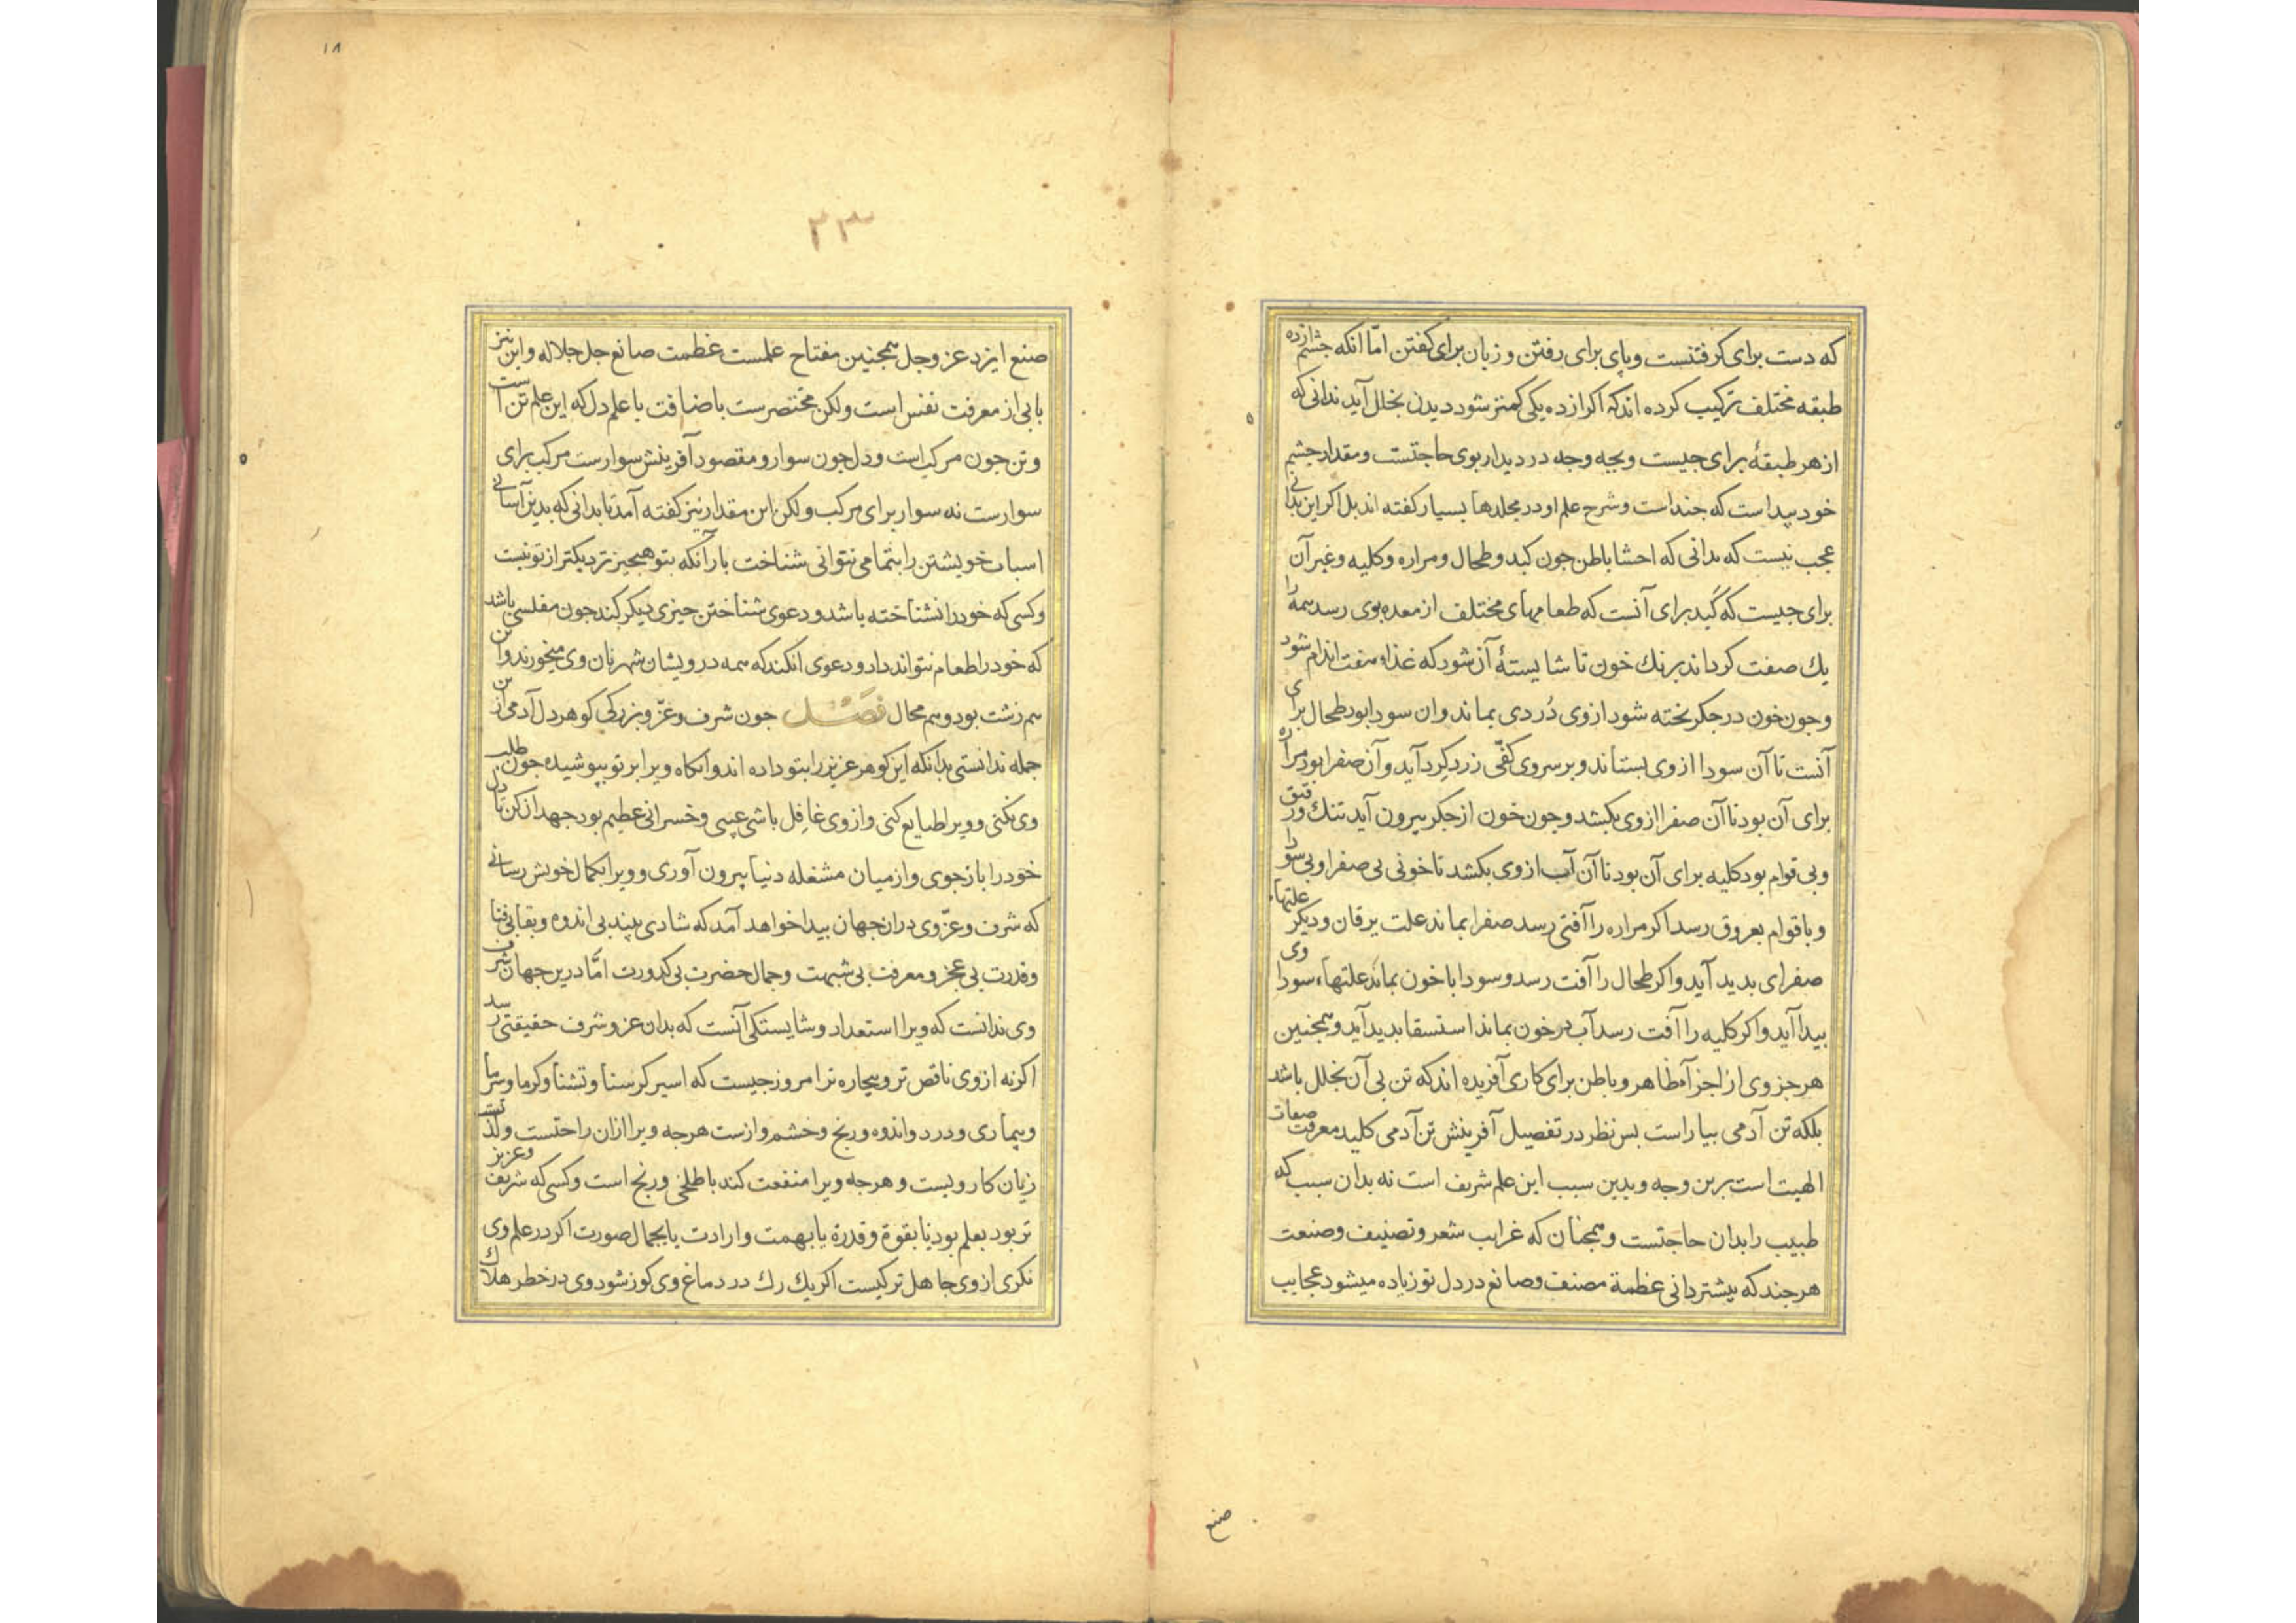 که دست برای کرفتنست وپای برای رفتن و زبان برای کفتن امّا انکه چشم از ده
طبقه مختلف ترکیب کرده اندکه اکر از ده یکی کمتر شود دیدن بخلل آید ندانی که
از هر طبقهٔ برای جیست وبجه وجه در دیدار بوی حاجتست ومقدار چشم
خود پیداست که جنداست وشرح علم او در مجلدها بسیار کفته اند بل اکر این ندانی
عجب نیست که ندانی که احشا باطن جون کبد وطحال ومراره وکلیه وغیر آن
برای جیست که کَبِد برای آنست که طعامهای مختلف از معده بوی رسد همه را
یك صفت کرداند برنك خون تا شایستهٔ آن شود که غذاء هفت اندام شود
وجون خون در جکر بخته شود از وی دُردی بماند وان سودا بود طحال برای
آنست تا آن سودا از وی بستاند وبر سر وی کفّی زرد کِرد آید وآن صفرا بود مراره
برای آن بود تا آن صفرا از وی بکشد وجون خون از جکر بیرون آید تنك ورقیق
وبی قوام بود کلیه برای آن بود تا آن آب از وی بکشد تا خونی بی صفرا وبی سودا
وبا قوام بعروق رسد اکر مراره را آفتی رسد صفرا بماند علت یرقان ودیکر علتهاء
صفرای بدید آید واکر طحال را آفت رسد وسودا با خون بماند علتهاء سوداوی
پیدا آید واکر کلیه را آفت رسد آب در خون بماند استسقا بدید آید وهمجنین
هر جزوی از اجزآء ظاهر وباطن برای کاری آفریده اند که تن بی آن بخلل باشد
بلکه تن آدمی بیاراست بس نظر در تفصیل آفرینش تن آدمی کلید معرفت صفات
الهیت است برین وجه وبدین سبب این علم شریف است نه بدان سبب که
طبیب را بدان حاجتست وهمجنان که غرایب شعر وتصنیف وصنعت
هرجند که بیشتر دانی عظمة مصنف وصانع در دل تو زیاده میشود عجایب
صنع
١٨
٢٣
صنع ایزد عز وجل همجنین مفتاح علمست عظمت صانع جل جلاله واین نیز
بابی از معرفت نفس است ولکن مختصرست باضافت با علم دل که این علم تن است
وتن جون مرکب است ودل جون سوار ومقصود آفرینش سوارست مرکب برای
سوارست نه سوار برای مرکب ولکن این مقدار نیز کفته آمد تا بدانی که بدین آسانی
اسباب خویشتن را بتمامی نتوانی شناخت بار آنکه بتو هیجیز نزدیکتر از تو نیست
وکسی که خود را نشناخته باشد ودعوی شناختن جیزی دیکر کند جون مفلسی باشد
که خود را طعام نتواند داد ودعوی انکند که همه درویشان شهر نان وی میخورند واین
هم زشت بود وهم محال فصل جون شرف وعزّ وبزرکی کوهر دل آدمی ازین
جمله ندانستی بدانکه این کوهر عزیز را بتو داده اند وانکاه ویرا بر تو ببوشیده جون طلب
وی نکنی وویرا ضایع کنی واز وی غافِل باشی عیبی وخسرانی عظیم بود جهد ان کن تا دل
خود را باز جوی واز میان مشغله دنیا بیرون آوری وویرا بکمال خویش رسانی
که شرف وعزّ وی در ان جهان بیدا خواهد آمد که شادی بیند بی اندوه وبقا بی فنا
وقدرت بی عجز ومعرفت بی شبهت وجمال حضرت بی کدورت امّا درین جهان شرف
وی ندانست که ویرا استعداد وشایستکی آنست که بدان عز وشرف حقیقتی رسد
اکرنه از وی ناقص تر وبیجاره تر امروز جیست که اسیر کرسنا وتشنا وکرما وسرما
وبیماری ودرد واندوه ورنج وخشم وازست هرجه ویرا ازان راحتست ولذتست
زیان کار ویست وهرجه ویرا منفعت کند با طلخی ورنج است وکسی که شریف وعزیز
تر بود بعلم بود یا بقوة وقدرة یا بهمت وارادت یا بجمال صورت اکر در علم وی
نکری از وی جاهل تر کیست اکر یك رك در دماغ وی کوز شود وی در خطر هلاك